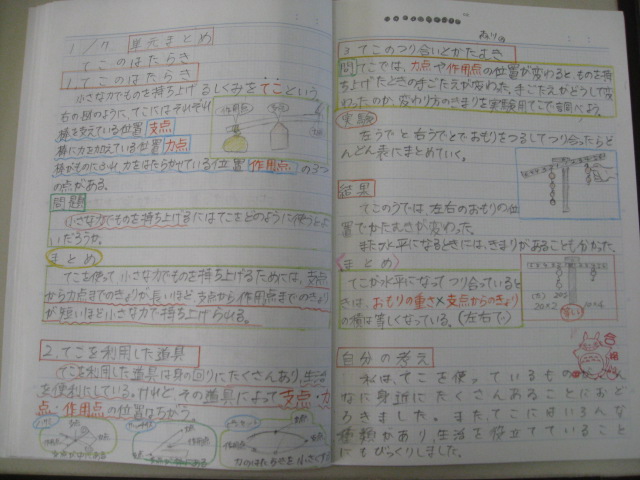 1/17 単元まとめ
てこのはたらき
1.てこのはたらき
小さな力でものを持ち上げるしくみをてこという
右の図のように、てこにはそれぞれ
棒を支えている位置 支点
棒に力を加えている位置 力点
棒がものにふれ、力をはたらかせている位置 作用点 の3つ
の点がある。
問題
小さな力でものを持ち上げるにはてこをどのように使うとよ
いだろうか。
まとめ
てこを使って小さな力でものを持ち上げるためには、支点
から力点までのきょりが長いほど、支点から作用点までのきょり
が短いほど小さな力で持ち上げられる。
2.てこを利用した道具
てこを利用した道具は身の回りにたくさんあり、生活
を便利にしている。けれど、その道具によって支点・力
点・作用点の位置はちがう。
3.てこのつり合いとかたむき
問 てこでは、力点や作用点の位置が変わると、ものを持ち
上げたときの手ごたえが変わった。手ごたえがどうして変
わったのか、変わり方のきまりを実験用てこで調べよう。
実験
左うでと右うでとでおもりをつるしてつり合ったらど
んどん表にまとめていく。
結果
てこのうでは、左右のおもりの位
置でかたむきが変わった。
また水平になるときには、きまりがあることも分かった。
まとめ
てこが水平になってつり合っていると
きは、おもりの重さ×支点からのきょり
の積は等しくなっている。(左右で)
20×2
10×4
自分の考え
私は、てこを使っているものが
なに身近にたくさんあることにおど
ろきました。また、てこにはいろんな
種類があり、生活を役立てていること
にもびっくりしました。